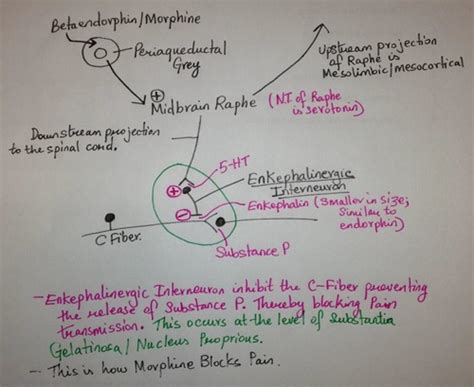 Betaendorphin/Morphine
Periaqueductal
Grey
Upstream projection
of Raphe is
Mesolimbic/Mesocortical
⊕
Midbrain Raphe (N.T of Raphe
is serotonin)
Downstream projection
to the spinal cord.
5-HT
⊕
Enkephalinergic
Interneuron
⊖
Enkephalin (Smaller in size;
Similar to
endorphin)
C Fiber.
Substance P
- Enkephalinergic Interneuron inhibit the C-Fiber preventing
the release of Substance P. Thereby blocking Pain
transmission. This occurs at the level of Substantia
Gelatinosa/Nucleus Proprious.
- This is how Morphine Blocks Pain.